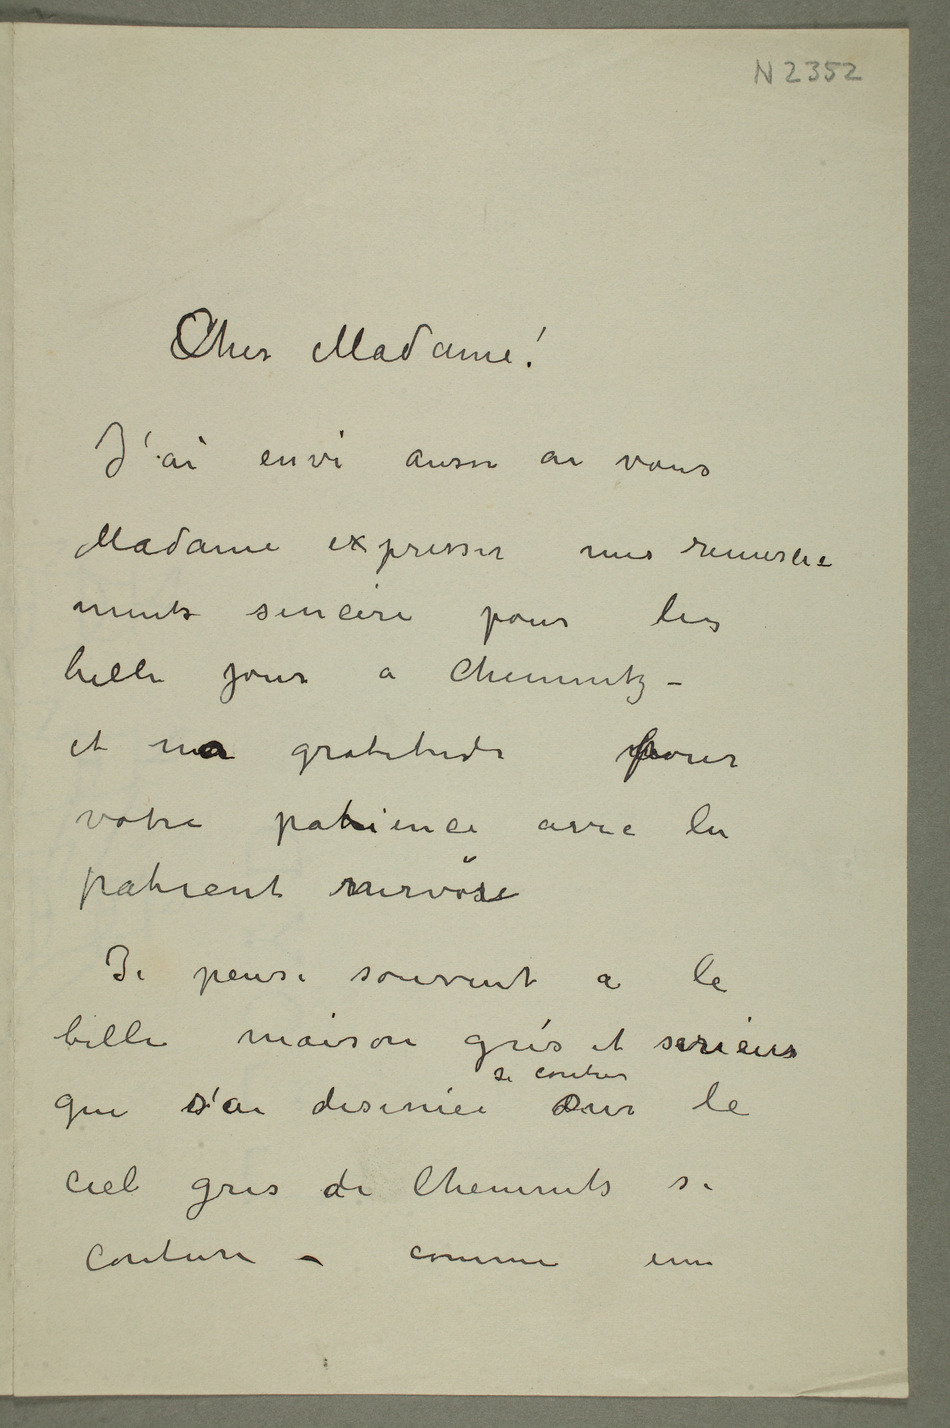 N 2352
Cher Madame!
J'ai envi aussi a vous
Madame expresser mes remercie
ments sincere pour les
belle jour a Chemnitz –
et ma gratitude pour
votre patience avec le
patient nervöse
Je pense souvent a le
belle maison gris et serieus
se contur
que s'ai desinée sur le
ciel gris de Chemnits se
conture – comme une